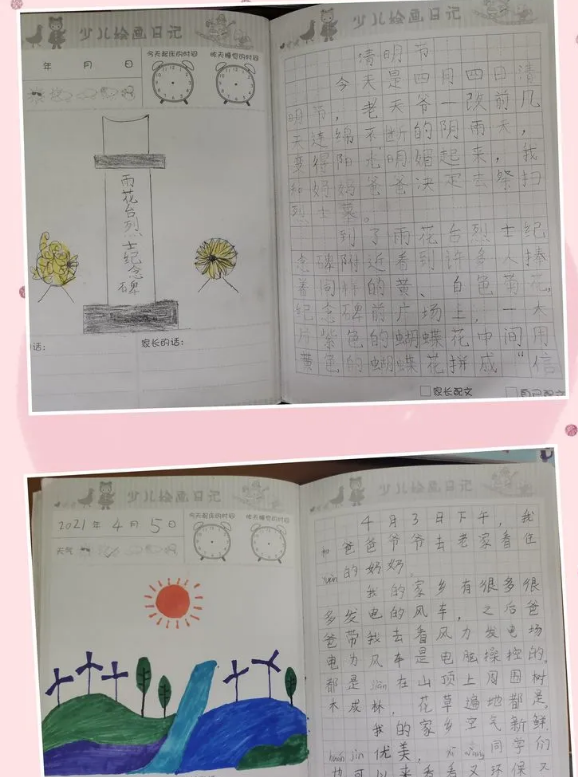 少儿绘画日记
年 月 日
今天起床的时间
昨天睡觉的时间
雨花台烈士纪念碑
家长的话:
少儿绘画日记
清明节
今天是四月四日清
明节,老天爷一改前几
天连绵不断的阴雨天,
变得阳光明媚起来,我
和妈妈爸爸决定去祭扫
烈士墓。
到了雨花台烈士纪
念碑附近看到许多人捧
着 的黄、白色菊花,
纪念碑前广场上,一大
片紫色的蝴蝶花中间用
黄色的蝴蝶花拼成“信
家长配文
少儿绘画日记
2021年4月5日
天气
今天起床的时间
昨天睡觉的时间
少儿绘画日记
4月3日下午,我
和爸爸爷爷去老家看住
的奶奶。
我的家乡有很多很
多发电的风车,之后爸
爸带我去看风力发电场
电力风车是电脑操控的,
都是 在山顶上周围树
木成林,花草遍地都是,
我的家乡空气新鲜
jìn优美, 同学们